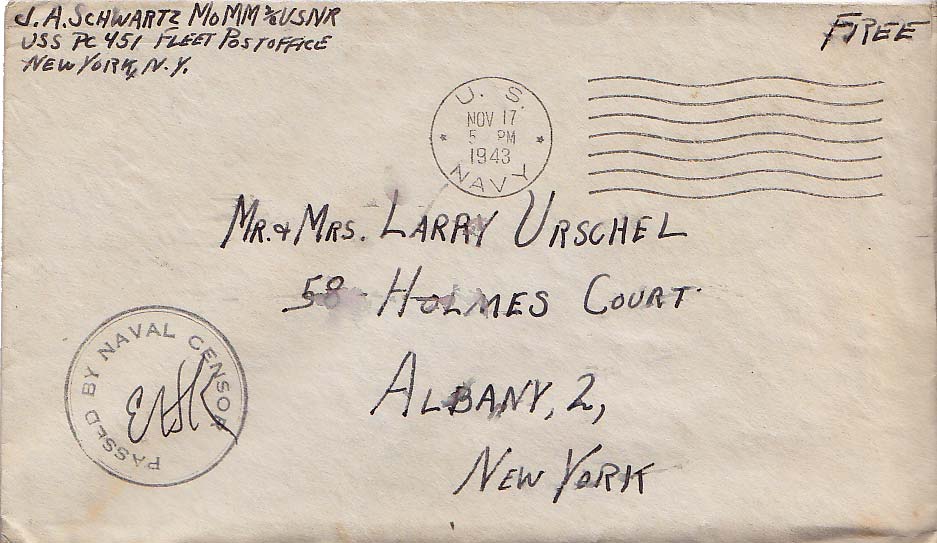 J. A. SCHWARTZ MoMM 2/c USNR
USS PC 451 FLEET POST OFFICE
NEW YORK, N.Y.
FREE
U. S.
NOV 17
5 PM
1943
NAVY
MR. & MRS. LARRY URSCHEL
58 HOLMES COURT
ALBANY, 2,
NEW YORK
PASSED BY NAVAL CENSOR